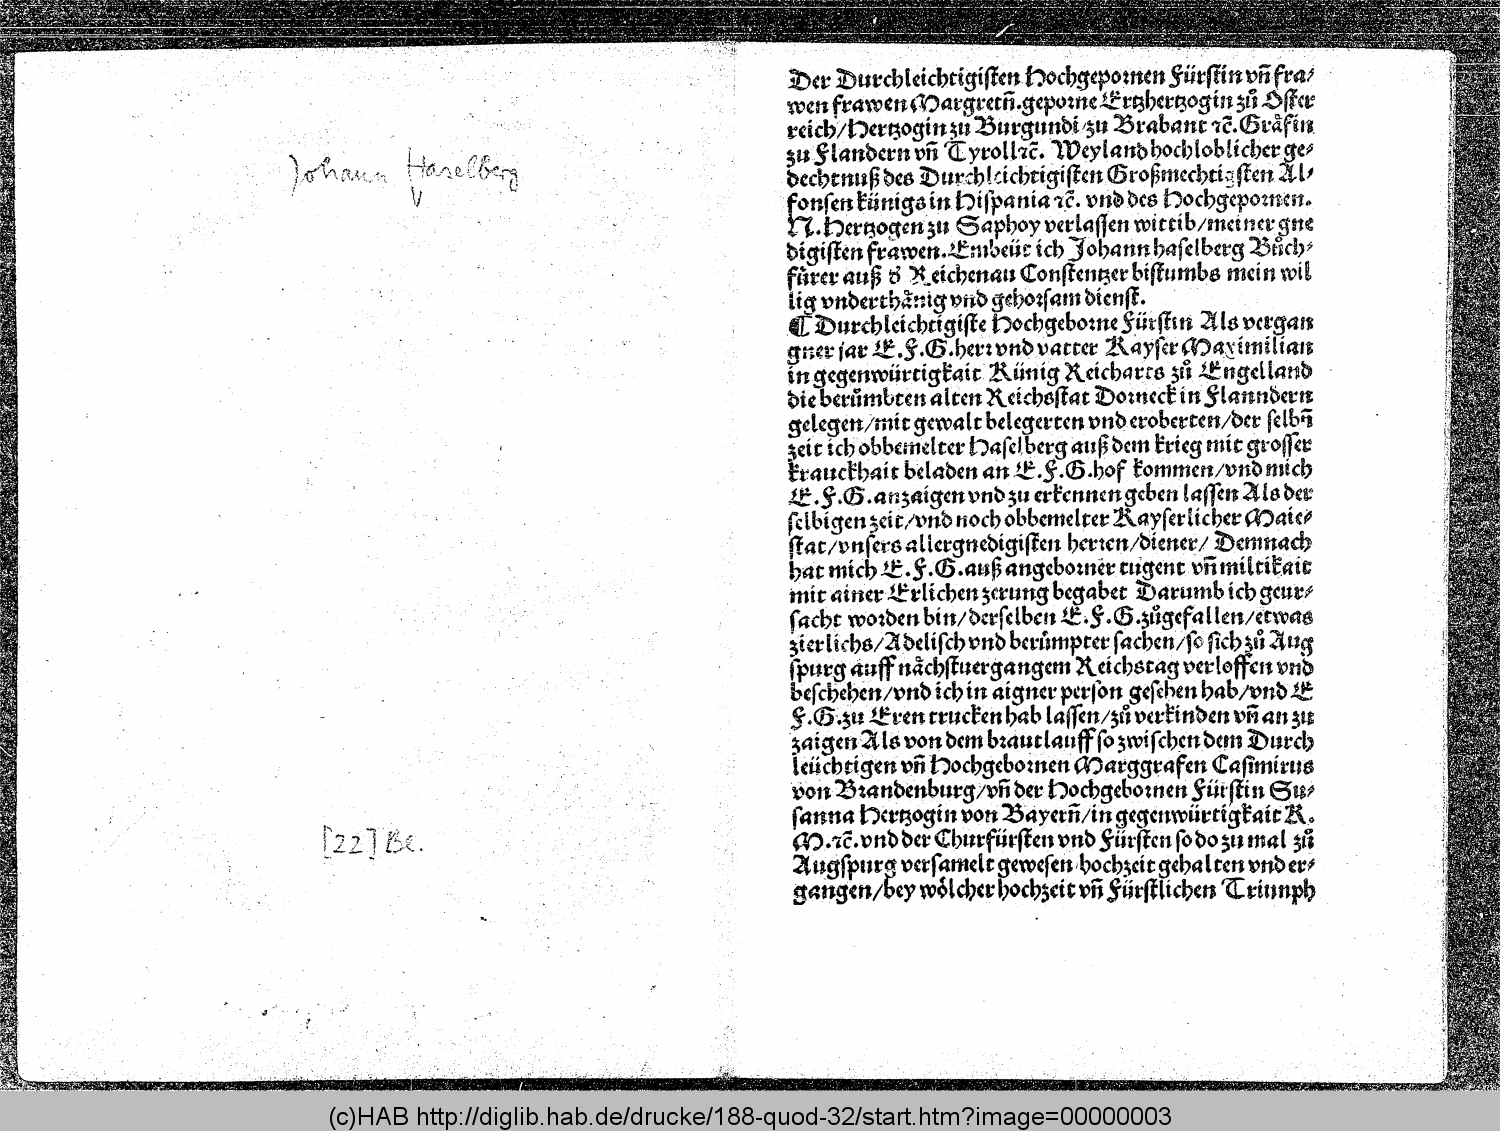 Johann Haselberg
[22] Be.
Der Durchleichtigiſten Hochgepornen Fürſtin vn̄ fra⸗
wen frawen Margretn̄.geporne Ertzhertzogin zů Oſter
reich/Hertzogin zu Burgundi/zu Brabant ⁊c̄.Gråfin
zu Flandern vn̄ Tyroll⁊c̄. Weyland hochloblicher ge⸗
dechtnuß des Durchleichtigiſten Großmechtigſten Al⸗
fonſen künigs in Hiſpania ⁊c̄. vnd des Hochgepornen.
N.Hertzogen zu Saphoy verlaſſen wittib/meiner gne
digiſten frawen.Embeüt ich Johann haſelberg Bůch⸗
fürer auß d̕ Reichenau Conſtentzer biſtumbs mein wil
lig vnderthånig vnd gehorſam dienſt.
¶ Durchleichtigiſte Hochgeborne Fürſtin Als vergan
gner jar E.F.G.herr vnd vatter Kayſer Maximilian
in gegenwürtigkait Künig Reicharts zů Engelland
die berůmbten alten Reichsſtat Dorneck in Flanndern
gelegen/mit gewalt belegerten vnd eroberten/der ſelbn̄
zeit ich obbemelter Haſelberg auß dem krieg mit groſſer
kranckhait beladen an E.F.G.hof kommen/vnd mich
E.F.G.anzaigen vnd zu erkennen geben laſſen Als der
ſelbigen zeit/vnd noch obbemelter Kayſerlicher Maie⸗
ſtat/vnſers allergnedigiſten herren/diener/ Demnach
hat mich E.F.G.auß angeborner tugent vn̄ miltikait
mit ainer Erlichen zerung begabet Darumb ich geur⸗
ſacht worden bin/derſelben E.F.G.zůgefallen/etwas
zierlichs/Adeliſch vnd berůmpter ſachen/ſo ſich zů Aug
ſpurg auff nåchſtuergangem Reichstag verloffen vnd
beſchehen/vnd ich in aigner perſon geſehen hab/vnd E
F.G.zu Eren trucken hab laſſen/zů verkinden vn̄ an zu
zaigen Als von dem brautlauff ſo zwiſchen dem Durch
leüchtigen vn̄ Hochgebornen Marggrafen Caſimirus
von Brandenburg/vn̄ der Hochgebornen Fürſtin Su⸗
ſanna Hertzogin von Bayern̄/in gegenwürtigkait K.
M.⁊c̄.vnd der Churfürſten vnd Fürſten ſo do zu mal zů
Augſpurg verſamelt geweſen hochzeit gehalten vnd er⸗
gangen/bey wőlcher hochzeit vn̄ Fürſtlichen Triumph
(c)HAB http://diglib.hab.de/drucke/188-quod-32/start.htm?image=00000003